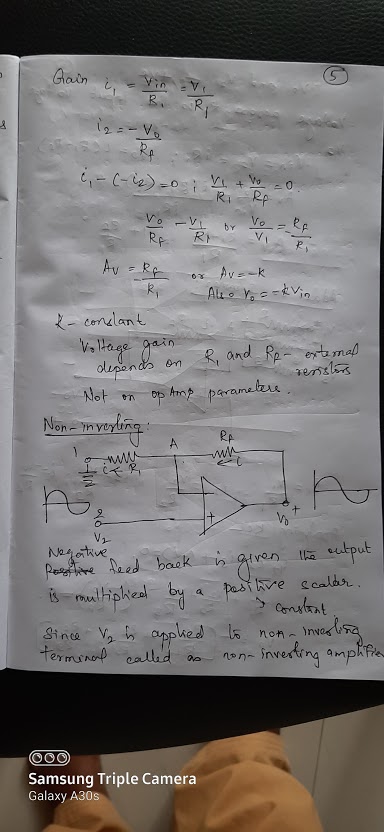 5
Gain i1 = Vin/R1 = V1/R1
i2 = -V0/Rf
i1 - (-i2) = 0 ; V1/R1 + V0/Rf = 0.
V0/Rf - V1/R1 or V0/V1 = Rf/-R1
Av = Rf/R1 or Av = -K
Also V0 = -KVin
K- constant
Voltage gain
depends on R1 and Rf - external
resistors
Not on op Amp parameters.
Non-inverting:
1 A Rf
i< R1 <i
2
V2 V0 +
- +
Negative
Positive feed back is given the output
is multiplied by a positive scalar.
> constant
Since V2 is applied to non-inverting
terminal called as non-inverting amplifier
Samsung Triple Camera
Galaxy A30s